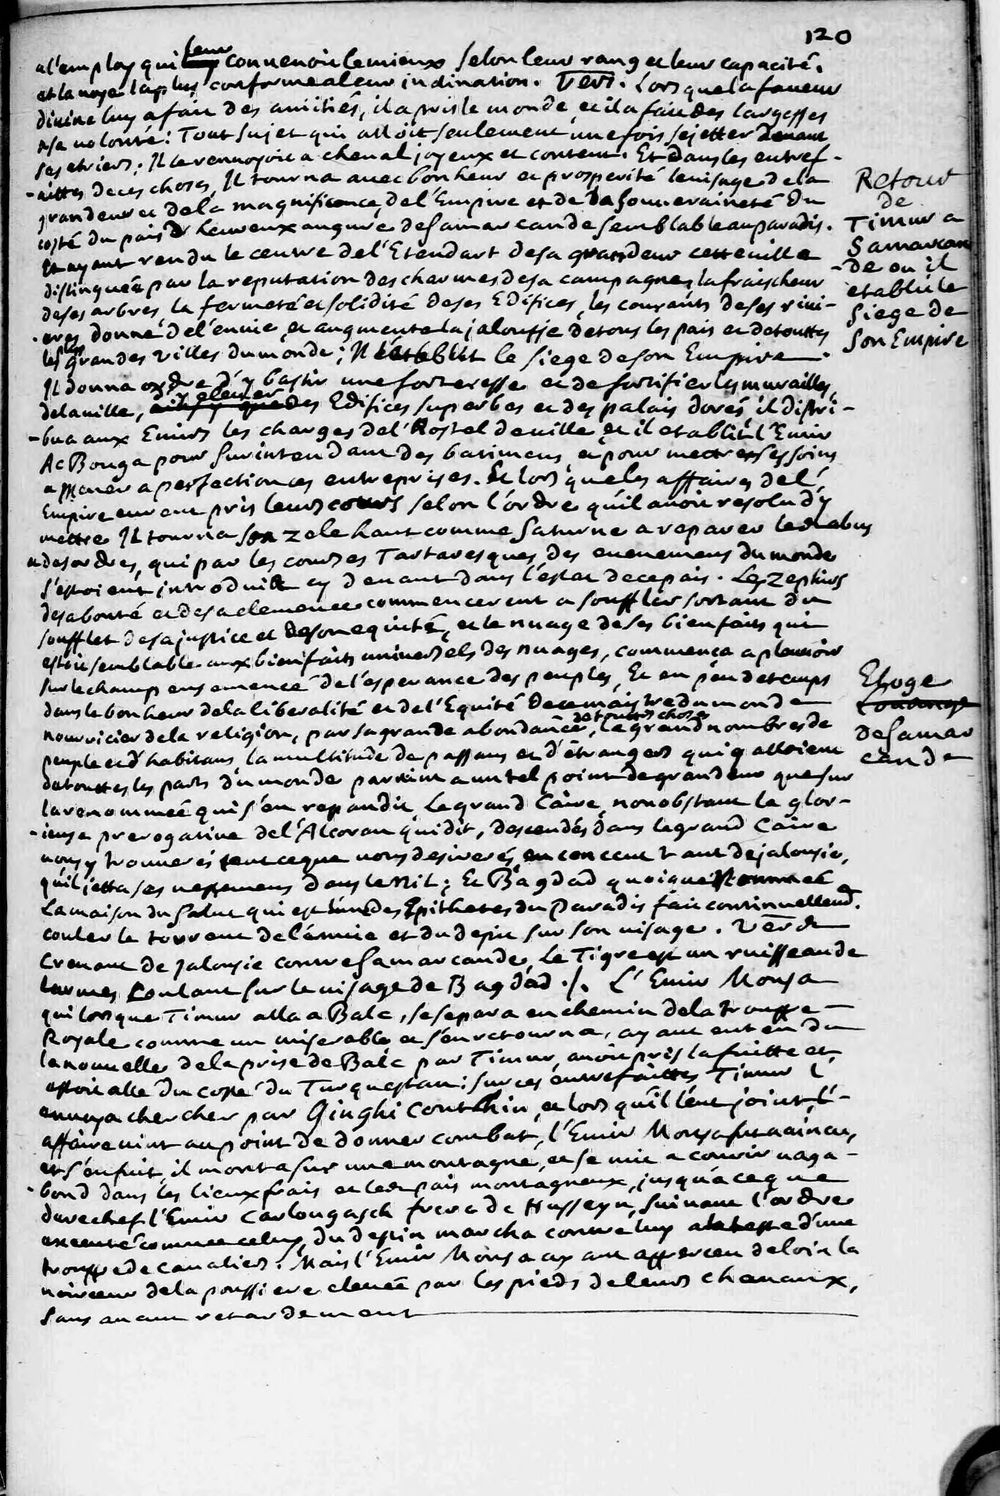 120
leur
a l'employ qui convenoit le mieux selon leur rang et leur capacité.
et la voye la plus conforme a leur inclination. Vers. Lorsque la faveur
divine luy a fait des amitiés, il a pris le monde et il a fait des largesses
a sa volonté: Tout sujet qui alloit seulement une fois se jetter devant
ses etriers. Il le renvoyoit a cheval joyeux et content. Et dans les entref-
-aittes de ces choses, Il tourna avec bonheur et prosperité le visage de la
grandeur et de la magnificence, de l'Empire et de la souveraineté du
costé du pais d'heureux augure de Samarcande semblable au paradis.
Et ayant rendu le centre de l'Etendart de sa grandeur cette ville
distinguée par la reputation des charmes de sa campagne, la fraischeur
de ses arbres, la fermeté et solidité de ses Edifices, les courants de ses rivi-
-eres donné de l'envie, et augmenté la jalousie de tous les pais et de touttes
les grandes villes du monde; Il establit le siege de son Empire
Retour
de
Timur a
Samarcan
-de ou il
etablit le
siege de
son Empire
Il donna ordre d'y bastir une forteresse et de fortifier les murailles
d'y elever
de la ville, des Edifices superbes et des palais dorés, il distri-
-bua aux Emirs les charges de l'Hostel de ville et il etablit l'Emir
AcBouga pour surintendant des batimens, et pour mettre ses soins
a mener a perfection ces entreprises. Et lorsque les affaires de l'
Empire eurent pris leurs cours selon l'ordre qu'il avoit resolu d'y
mettre Il tourna son zele haut comme Saturne a reparer les abus
et desordres, qui par les courses Tartaresques, des evenemens du monde
s'estoient introduits cy devant dans l'estat de ce pais. Les Zephirs
de sa bonté et de sa clemence commencerent a souffler sortant du
soufflet de sa justice et de son equité, et le nuage de ses bienfaits qui
estoit semblable aux bienfaits universels des nuages, commença a pleuvoir
sur le champ ensemencé de l'esperance des peuples, Et en peu de temps
dans le bonheur de la liberalité et de l'Equité de ce maistre du monde
de touttes choses
nourricier de la religion, par sa grande abondance, le grand nombre de
peuple et d'habitans, la multitude de passans et d'étrangers qui y alloient
de touttes les parts du monde parvint a un tel point de grandeur que sur
Eloge
Louange
de Samar
cande
la renommée qui s'en repandit, Le grand Caire, nonobstant la glor-
-ieuse prerogative de l'Alcoran qui dit, descendés dans le grand Caire
vous y trouverés tout ce que vous desirerés, en conceut tant de jalousie,
qu'il jetta ses vestemens dans le Nil; Et Bagdad quoique Nommée
La maison du Salut qui est l'une des Epithetes du Paradis fait continuellemt.
couler le torrent de l'envie et du depit sur son visage. Vers de
Crevant de jalousie contre Samarcande, Le Tigre est un ruisseau de
larmes coulant sur le visage de Bagdad./. L'Emir Mousa
qui lorsque Timur alla a Balc, se separa en chemin de la trouppe
Royale comme un miserable et s'en retourna, ayant entendu
la nouvelle de la prise de Balc par Timur, avoit pris la fuitte et
estoit allé du costé du Turquestan: sur ces entrefaittes Timur l'
envoya chercher par Ginghi Coutchin, et lors qu'il l'eut joint, l'-
affaire vint au point de donner combat, l'Emir Mousa fut vaincu,
et s'enfuit, il monta sur une montagne, et se mit a courir vaga-
-bond dans les lieux frais et les pais montagneux, jusqu'a ce que
derechef l'Emir Carlougasch frere de Husseyn, suivant l'ordre
executé comme celuy du destin marcha contre luy a la teste d'une
trouppe de cavaliers. Mais l'Emir Mousa ayant apperceu de loin la
noirceur de la poussiere elevée par les pieds de leurs chevaux,
sans aucun retardement